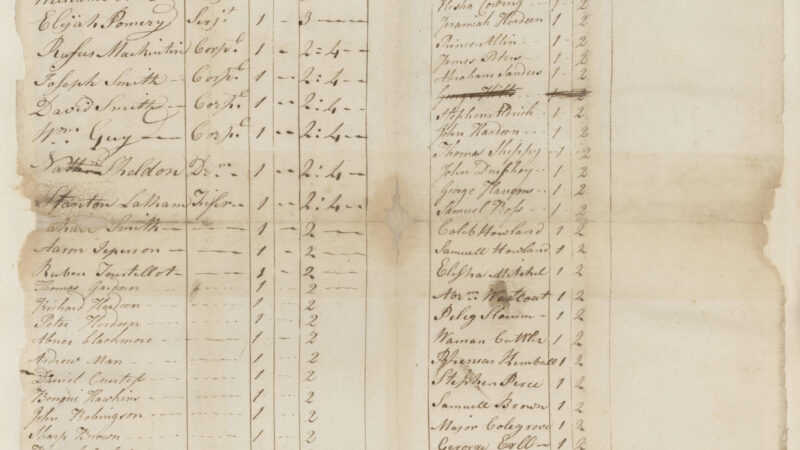 Elijah Pomery Serjt 1 -- 3 ---
Rufus Mackintire Corpl 1 -- 2:4 --
Joseph Smith -- Corpl 1 -- 2:4 --
David Smith -- Corpl 1 -- 2:4 --
Wm Guy --- Corpl 1 -- 2:4 --
Nathan Sheldon Dr 1 -- 2:4 --
Stanton Latham 1 -- 2:4 --
Smith --- 1 -- 2 --
Aaron Jeperson --- 1 -- 2 --
Ruben Tourtillot --- 1 -- 2 --
Thomas Gardner --- 1 -- 2 --
Richard Herdeen 1 2
Peter Herdeen 1 2
Abner Blackmore 1 2
Andrew Man 1 2
Daniel Courtess 1 2
Benone Hawkins 1 2
John Robingson 1 2
Sharp Brown 1 2
Elisha Cowing 1 2
Jeramiah Herdeen 1 2
Prince Allin 1 2
James Peters 1 2
Abraham Sanders 1 2
George 1 2
Stephen Aldrich 1 2
John Hardeen 1 2
Thomas Shippy 1 2
John Dusphey 1 2
George Havens 1 2
Samuel Ross 1 2
Caleb Howland 1 2
Samuell Howland 1 2
Elisha Mitchel 1 2
Abrm Westcoat 1 2
Peleg Slocum 1 2
Waman Cuttler 1 2
Pheneas Kemball 1 2
Stephen Perce 1 2
Samuell Brown 1 2
Major Colegrove 1 2
Gerorge Exll 1 2